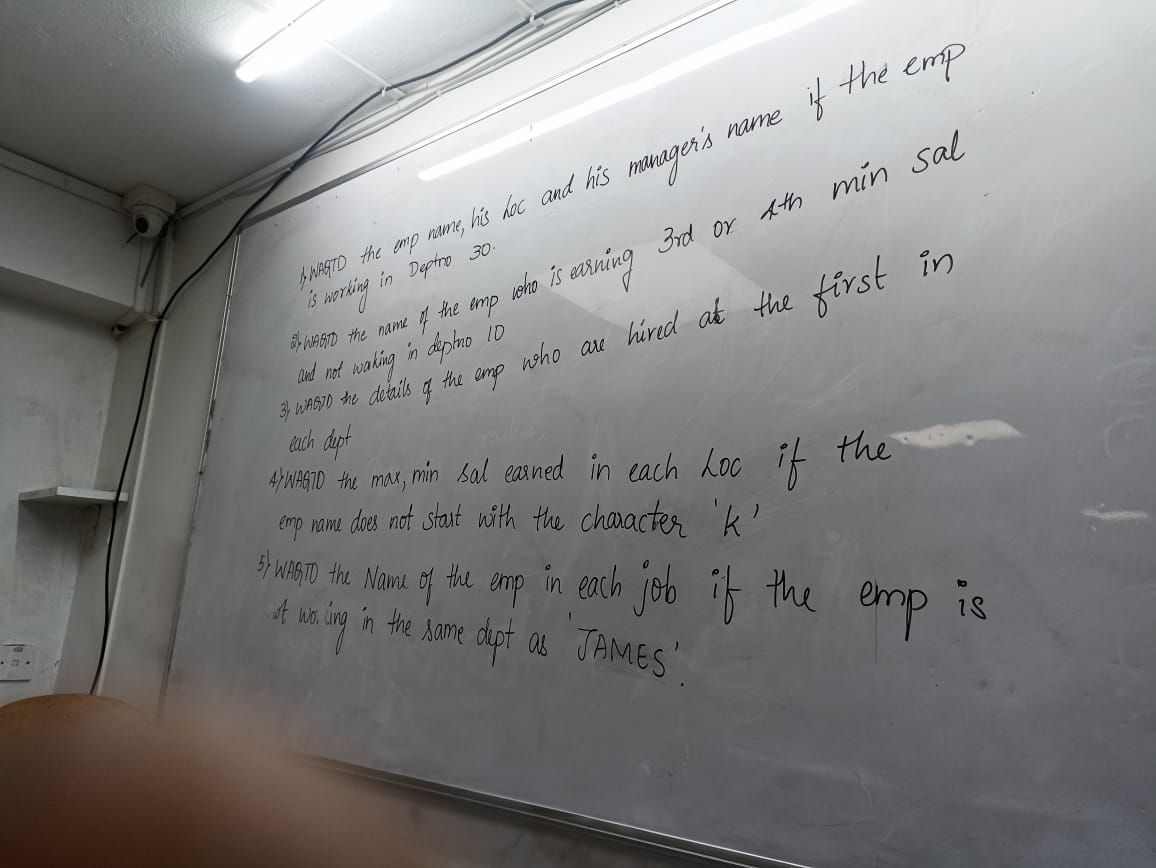 1) WAQTD the emp name, his Loc and his manager's name if the emp
is working in Deptno 30.
2) WAQTD the name of the emp who is earning 3rd or 4th min sal
and not woking in deptno 10
3) WAQTD the details of the emp who are hired at the first in
each dept
4) WAQTD the max, min sal earned in each Loc if the
emp name does not start with the character 'k'
5) WAQTD the Name of the emp in each job if the emp is
in the same dept as 'JAMES'.